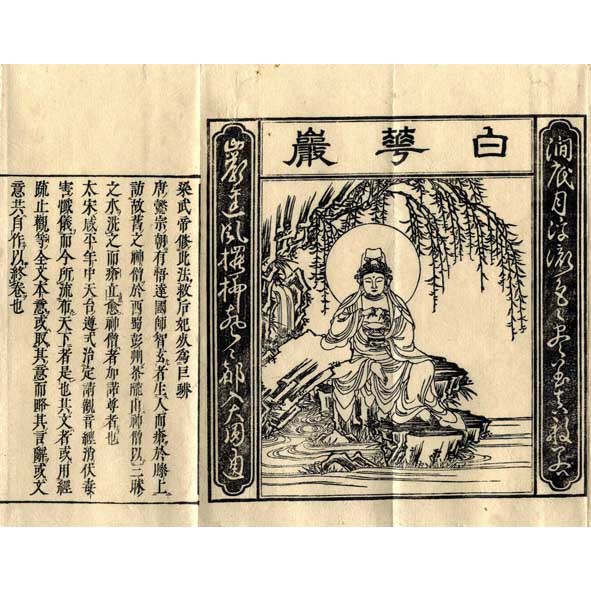 白華巖
澗底月浮漪色々盡呈真般若
巖邊風擺柳聲々都入大圓通
梁武帝修此法救后妃為巨蠎
唐懿宗朝有悟達國師智玄者生人面瘡於膝上
訪故舊之神僧於西蜀彭州茶隴山神僧以三昧
之水洗之而瘡立愈神僧者加諾尊者也
大宋咸平年中天台遵式治定請觀音經消伏毒
害懺儀而今所流布天下者是也其文者或用經
疏止觀等全文本意或取其意而略其言辭或文
意共自作以終卷也